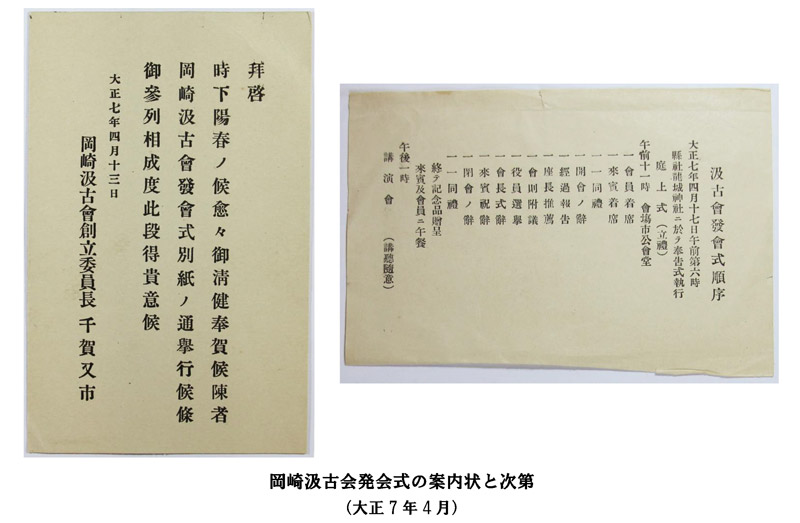 拜啓
時下陽春ノ候愈々御淸健奉賀候陳者
岡崎汲古會發會式別紙ノ通擧行候條
御參列相成度此段得貴意候
大正七年四月十三日
岡崎汲古會創立委員長 千賀又市
汲古會發會式順序
大正七年四月十七日午前第六時
縣社龍城神社ニ於テ奉吿式執行
庭上式(立禮)
午前十一時 會塲市公會堂
一會員着席
一來賓着席
一一同禮
一開會ノ辭
一經過報吿
一座長推薦
一會則附議
一役員選擧
一會長式辭
一來賓祝辭
一閉會ノ辭
一一同禮
終テ記念品贈呈
來賓及會員ニ午餐
午後一時
講演會 (講聽隨意)
岡崎汲古会発会式の案内状と次第
(大正7年4月)